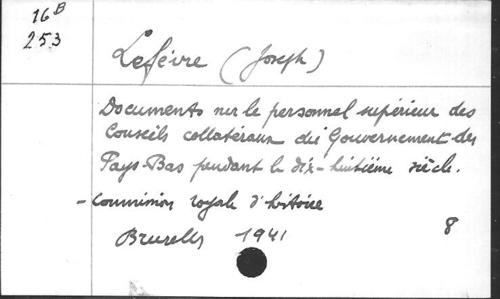 16B
253
Lefévre (Joseph)
Documents sur le personnel supérieur des
Conseils collatéraux du Gouvernement des
Pays-Bas pendant le dix-huitième siècle.
- Commission royale d'histoire
Bruxelles 1941
8